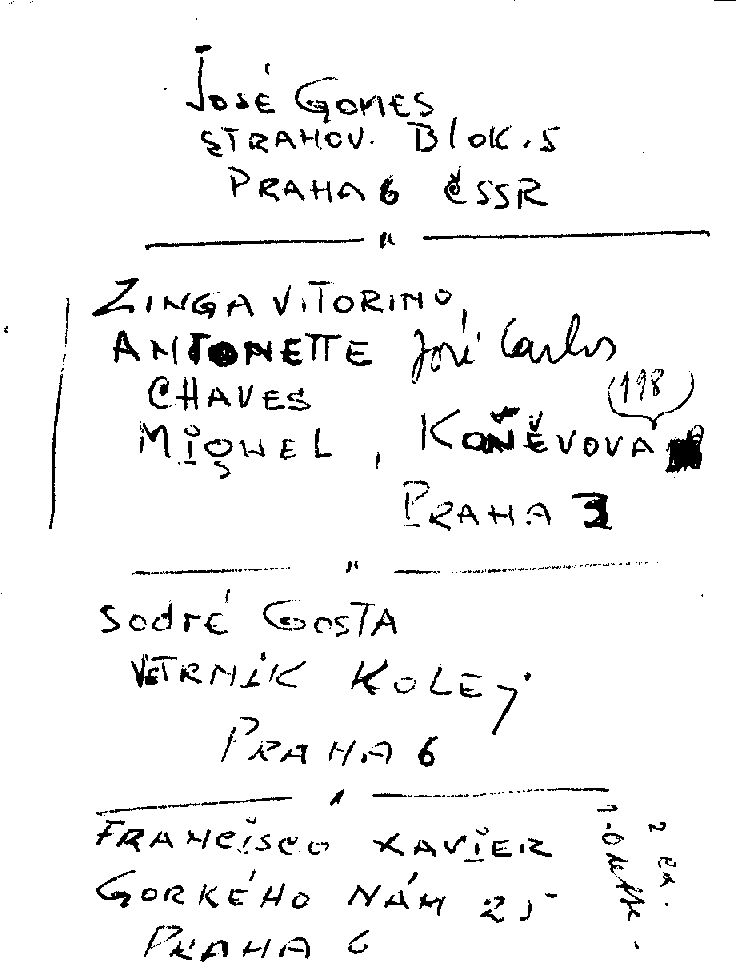 José GOMES
STRAHOV. Blok. 5
PRAHA 6 ČSSR
ZINGA VITORINO,
ANTONETTE José Carlos
CHAVES
(198)
MIGUEL, KOŇĚVOVA
PRAHA 3
Sodré COSTA
VĚTRNÍK KOLEJ
PRAHA 6
FRANCISCO XAVIER
GORKÉHO NÁM 25
PRAHA 6
2 ex.
1-Odette.